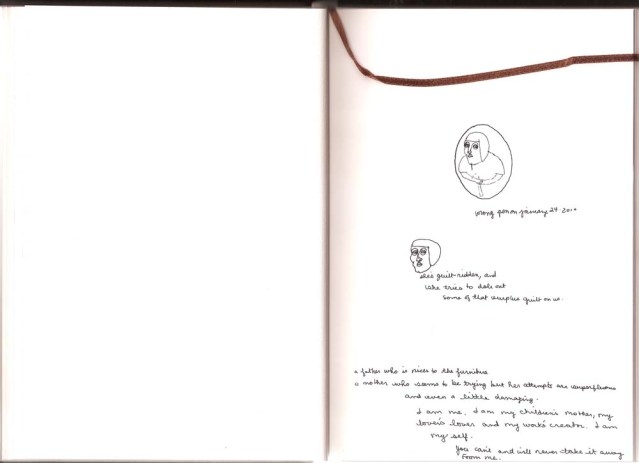 wrong person january 24 2010
she's guilt-ridden, and
she tries to dole out
some of that surplus guilt on us.
a father who is nicer to the furniture
a mother who seems to be trying but her attempts are superfluous
and even a little damaging.
I am me. I am my children's mother, my
lover's lover and my work's creator. I am
my self.
you can't and will never take it away
from me.